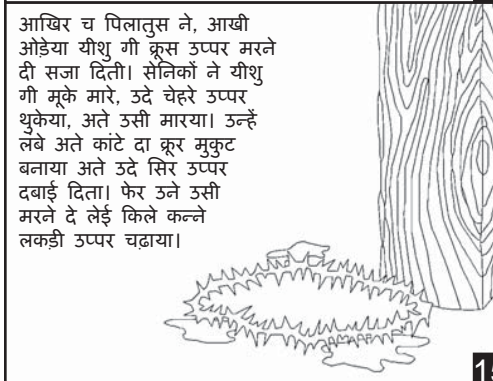 आखिर च पिलातुस ने, आखी
ओड़ेया यीशु गी क्रूस उप्पर मरने
दी सजा दिती। सेनिकों ने यीशु
गी मूके मारे, उदे चेहरे उप्पर
थुकेया, अते उसी मारया। उन्हें
लंबे अते कांटे दा क्रूर मुकुट
बनाया अते उदे सिर उप्पर
दबाई दिता। फेर उने उसी
मरने दे लेई किले कन्ने
लकड़ी उप्पर चढ़ाया।